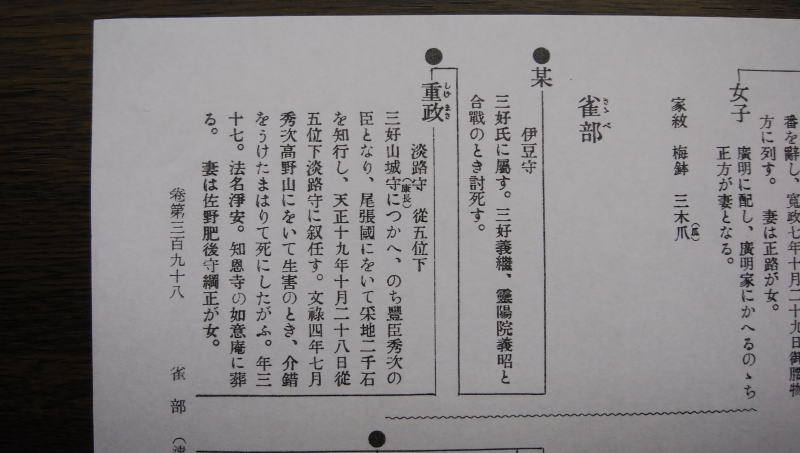 番を辭し、寛政七年十月二十九日御腰物
方に列す。 妻は正路が女。
女子
廣明に配し、廣明家にかへるのゝち
正方が妻となる。
家紋 梅鉢 三木瓜(瓜)
雀部
さゝべ
某
伊豆守
三好氏に屬す。三好義繼、靈陽院義昭と
合戰のとき討死す。
重政
しげ まさ
淡路守 從五位下
三好山城守(康長)につかへ、のち豐臣秀次の
臣となり、尾張國にをいて采地二千石
を知行し、天正十九年十月二十八日從
五位下淡路守に叙任す。文祿四年七月
秀次高野山にをいて生害のとき、介錯
をうけたまはりて死にしたがふ。年三
十七。法名淨安。知恩寺の如意庵に葬
る。 妻は佐野肥後守綱正が女。
卷第三百九十八 雀部